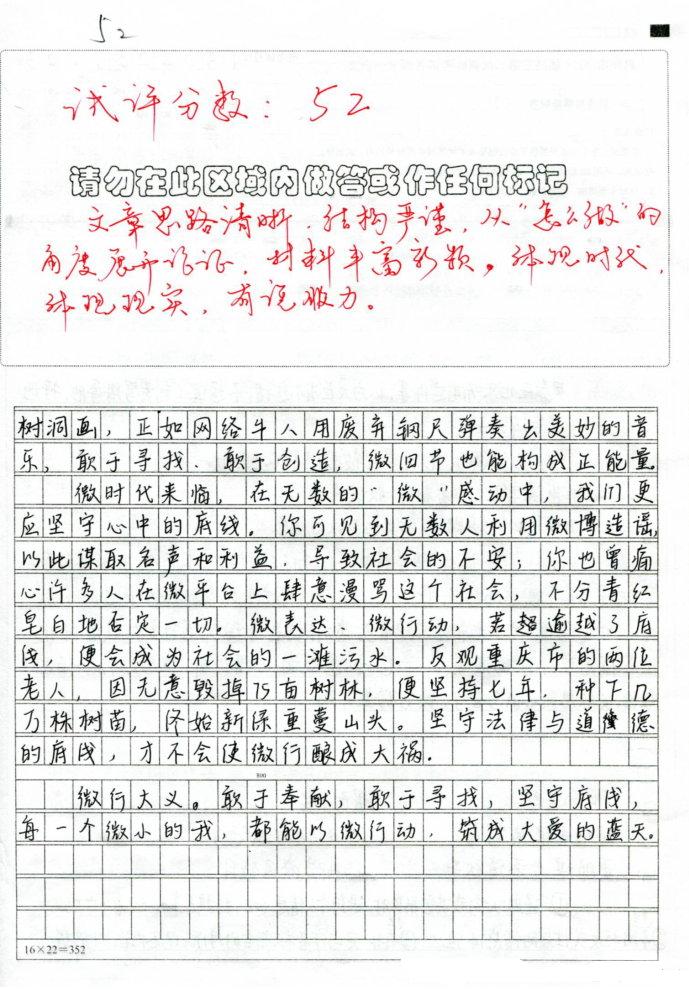 52
试评分数：52
请勿在此区域内做答或作任何标记
文章思路清晰，结构严谨，从“怎么做”的
角度展开论证，材料丰富新颖。体现时代，
体现现实，有说服力。
树洞画，正如网络牛人用废弃钢尺弹奏出美妙的音
乐，敢于寻找、敢于创造，微细节也能构成正能量。
微时代来临，在无数的“微”感动中，我们更
应坚守心中的底线。你可见到无数人利用微博造谣，
以此谋取名声和利益，导致社会的不安；你也曾痛
心许多人在微平台上肆意漫骂这个社会，不分青红
皂白地否定一切。微表达、微行动，若超逾越了底
线，便会成为社会的一滩污水。反观重庆市的两位
老人，因无意毁掉75亩树林，便坚持七年，种下几
万株树苗，终始新绿重蔓山头。坚守法律与道德
的底线，才不会使微行酿成大祸。
800
微行大义。敢于奉献，敢于寻找，坚守底线，
每一个微小的我，都能以微行动，筑成大爱的蓝天。
16×22=352